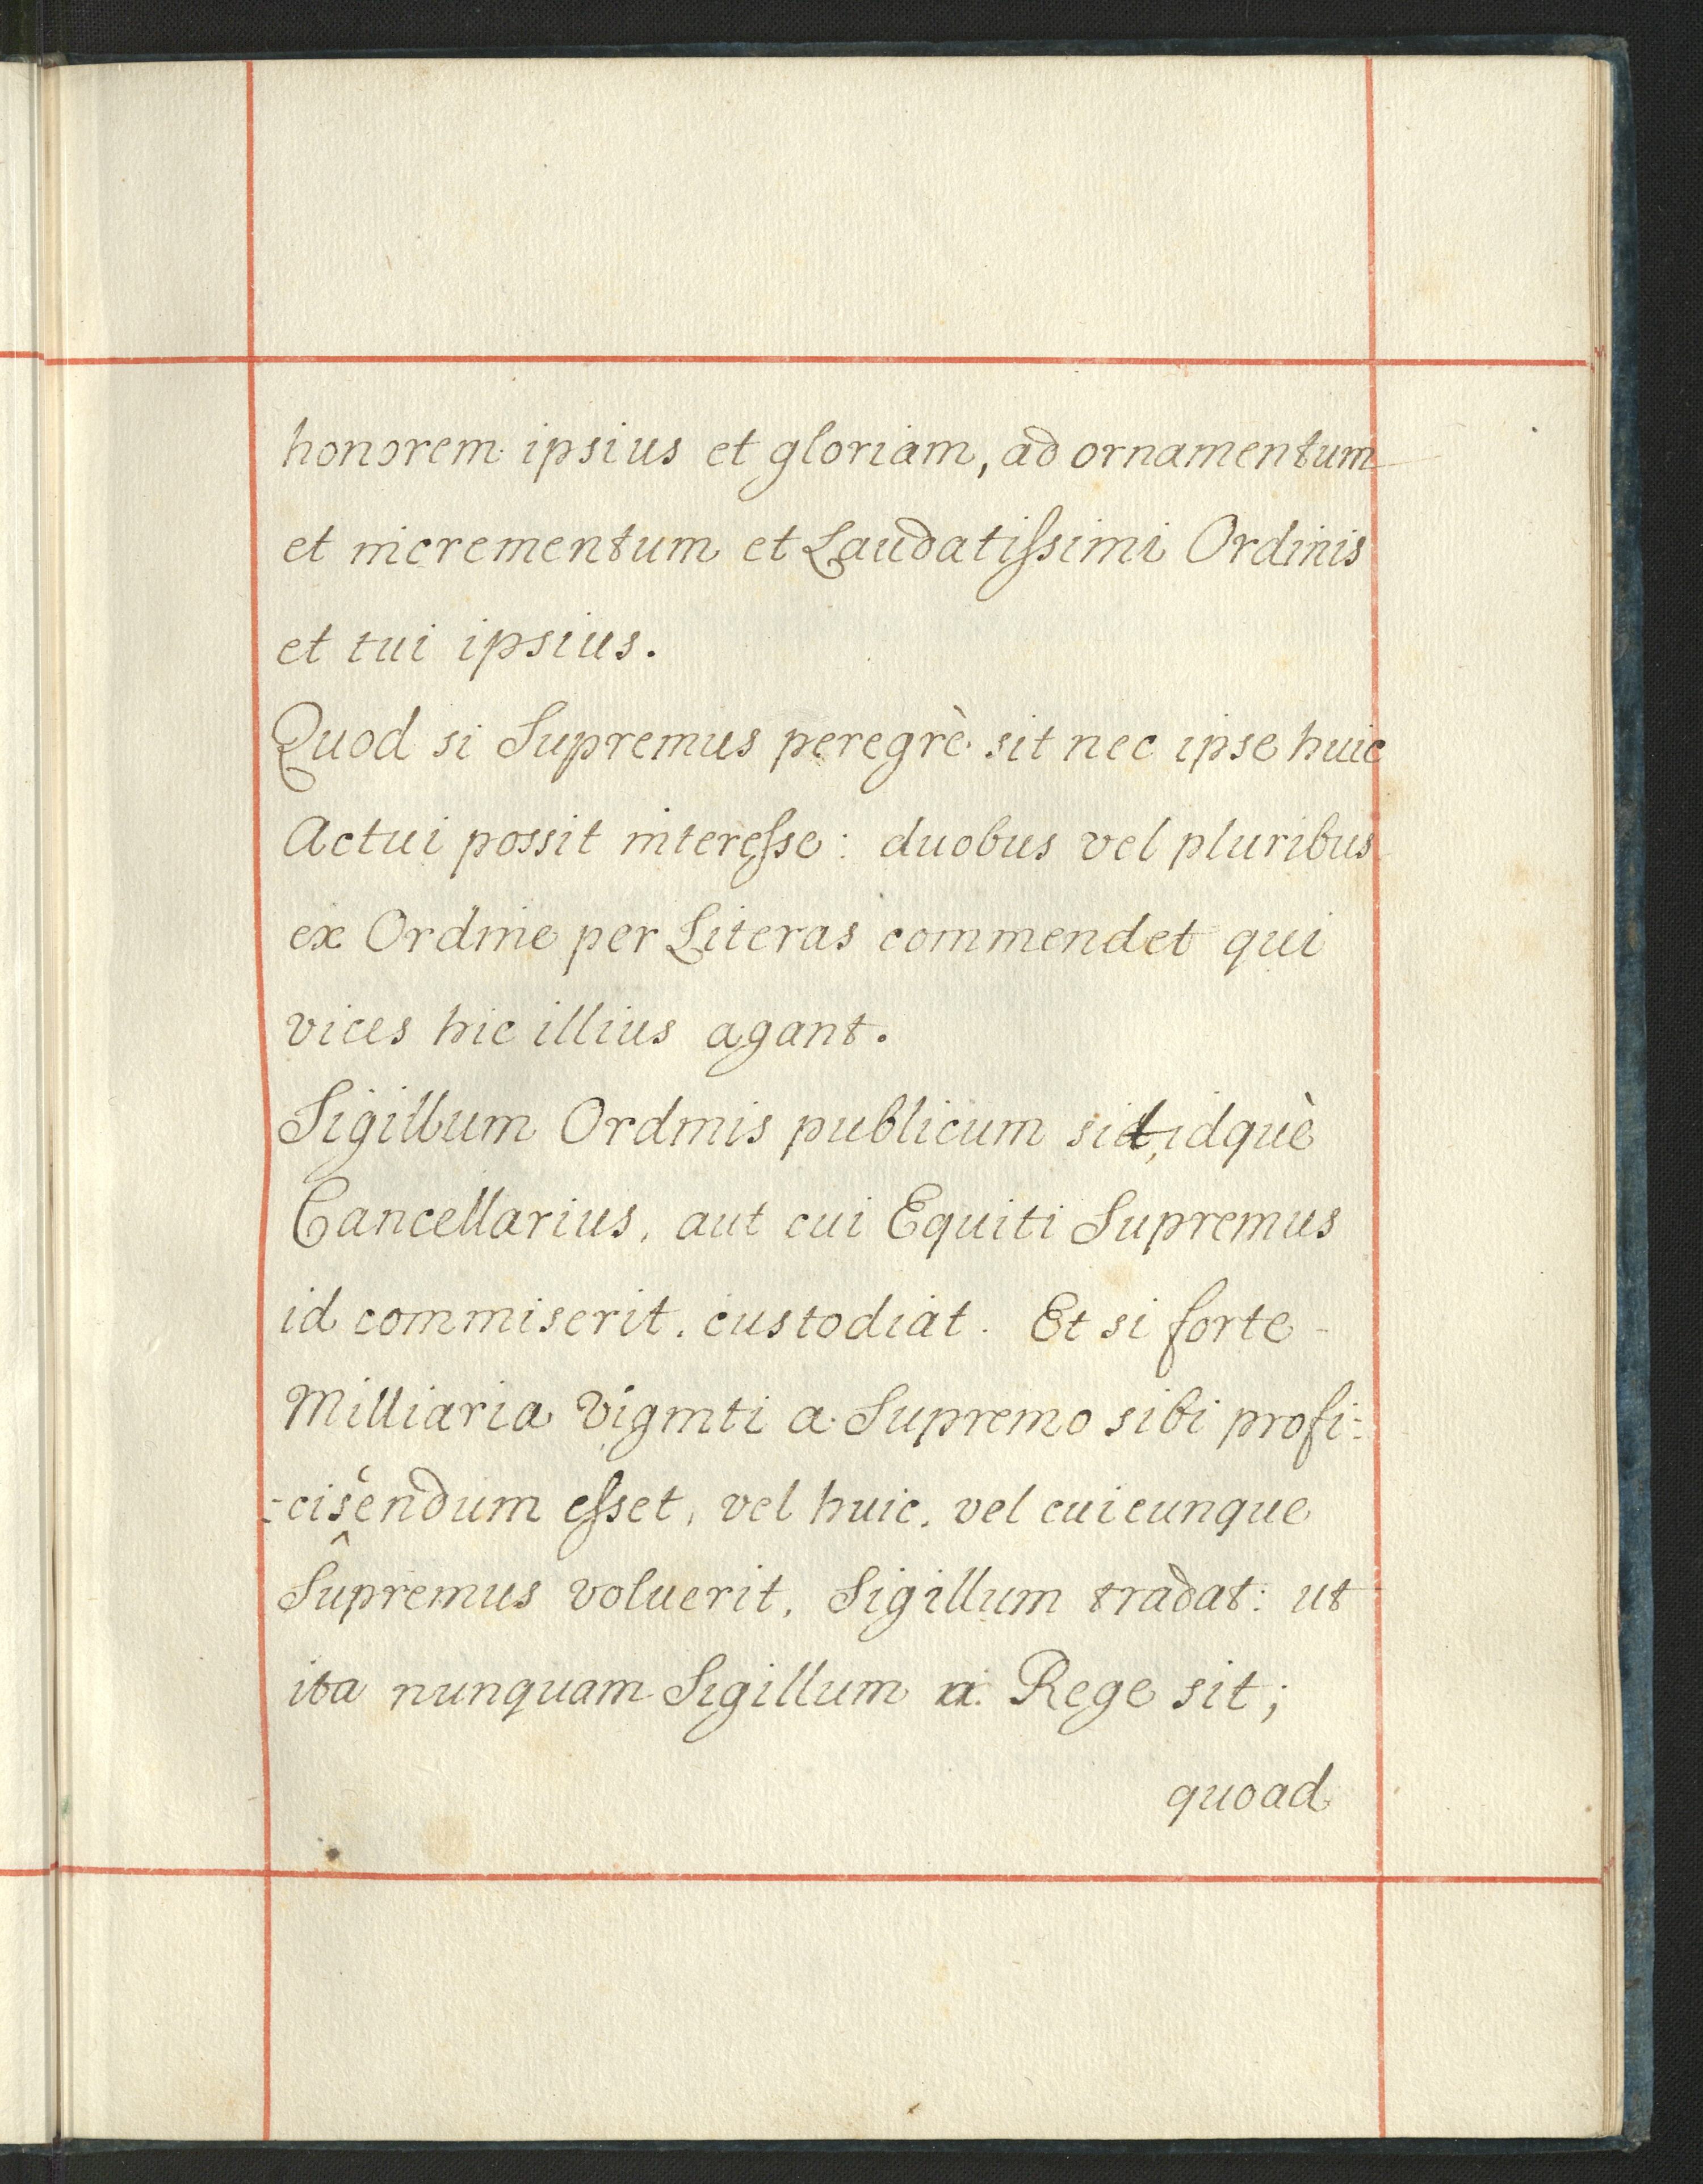 honorem ipsius et gloriam, ad ornamentum
et incrementum et Laudatißimi Ordinis
et tui ipsius.
Quod si Supremus peregrè sit nec ipse huic
Actui possit intereße: duobus vel pluribus
ex Ordine per Literas commendet qui
vices hic illius agant.
Sigillum Ordinis publicum sit, idquè
Cancellarius, aut cui Equiti Supremus
id commiserit, custodiat. Et si forte -
Milliaria Viginti a Supremo sibi profi:
-ciscendum eßet, vel huic, vel cuicunque
Supremus voluerit, Sigillum tradat: ut
ita nunquam Sigillum a Rege sit;
quoad